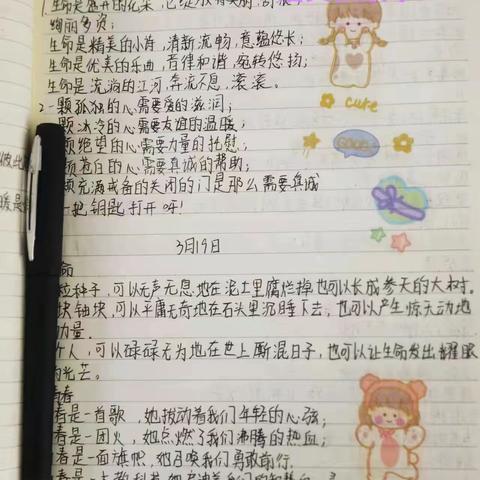 1生命是盛开的花朵,它绽放得美丽,舒展
绚丽多资;
生命是精美的小诗,清新流畅,意蕴悠长;
生命是优美的乐曲,音律和谐,宛转悠扬;
生命是流淌的江河,奔流不息,滚滚。
2一颗孤独的心需要爱的滋润;
颗冰冷的心需要友谊的温暖;
颗绝望的心需要力量的托慰;
颗苍白的心需要真诚的帮助;
颗充满戒备的关闭的门是那么需要真诚
一把钥匙打开呀!
cute
GOOD
彼此
暖是
3月19日
命
粒种子,可以无声无息地在泥土里腐烂掉也可以长成参天的大树。
块铀块,可以平庸无奇地在石头里沉睡下去,也可以产生惊天动地
力量.
个人,可以碌碌无为地在世上厮混日子,也可以让生命发出耀眼
的光芒。
春
春是一首歌,她拨动着我们年轻的心弦;
春是一团火,她点燃了我们沸腾的热血;
春是一面旗帜,她召唤我们勇敢前行.
春是一本教科书